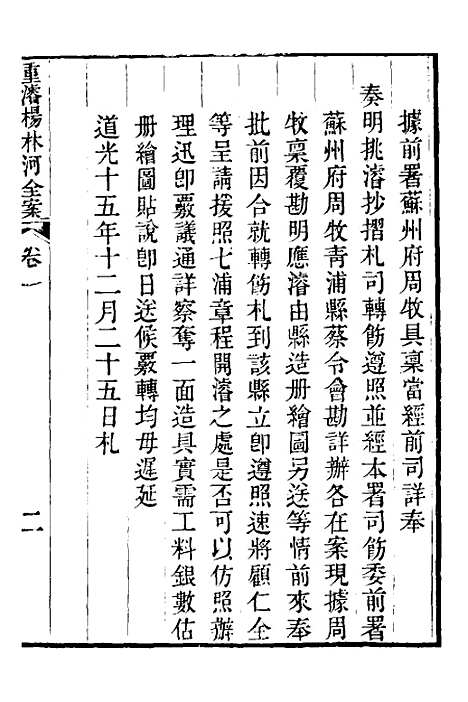 據前署蘇州府周牧具稟當經前司詳奉
奏明挑濬抄摺札司轉飭遵照並經本署司飭委前署
蘇州府周牧青浦縣蔡令會勘詳辦各在案現據周
牧稟覆勘明應濬由縣造册繪圖另送等情前來奉
批前因合就轉飭札到該縣立卽遵照速將顧仁全
等呈請援照七浦章程開濬之處是否可以仿照辦
理迅卽覈議通詳察奪一面造具實需工料銀數估
册繪圖貼說卽日送候覈轉均毋遲延
道光十五年十二月二十五日札
重濬楊林河全案 卷一 二